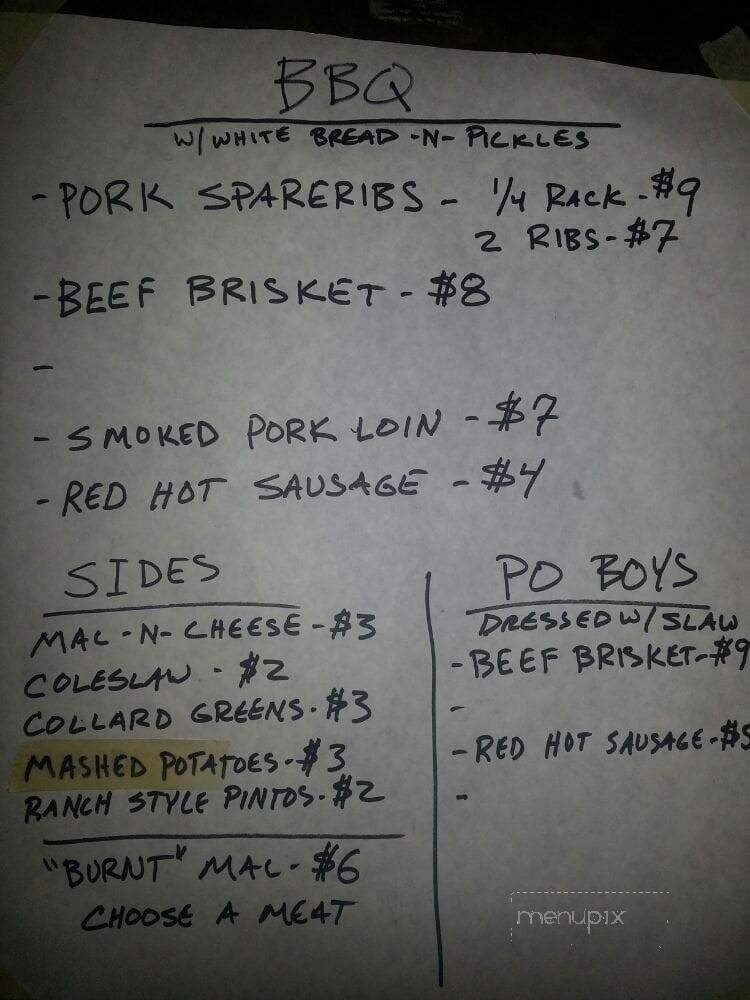 BBQ
W/WHITE BREAD -N- PICKLES
- PORK SPARERIBS - 1/4 RACK - $9
2 RIBS - $7
- BEEF BRISKET - $8
-
- SMOKED PORK LOIN - $7
- RED HOT SAUSAGE - $4
SIDES
MAC -N- CHEESE - $3
COLESLAW - $2
COLLARD GREENS - $3
MASHED POTATOES - $3
RANCH STYLE PINTOS - $2
"BURNT" MAC - $6
CHOOSE A MEAT
PO BOYS
DRESSED W/ SLAW
- BEEF BRISKET - $9
-
- RED HOT SAUSAGE - $5
-
menupix